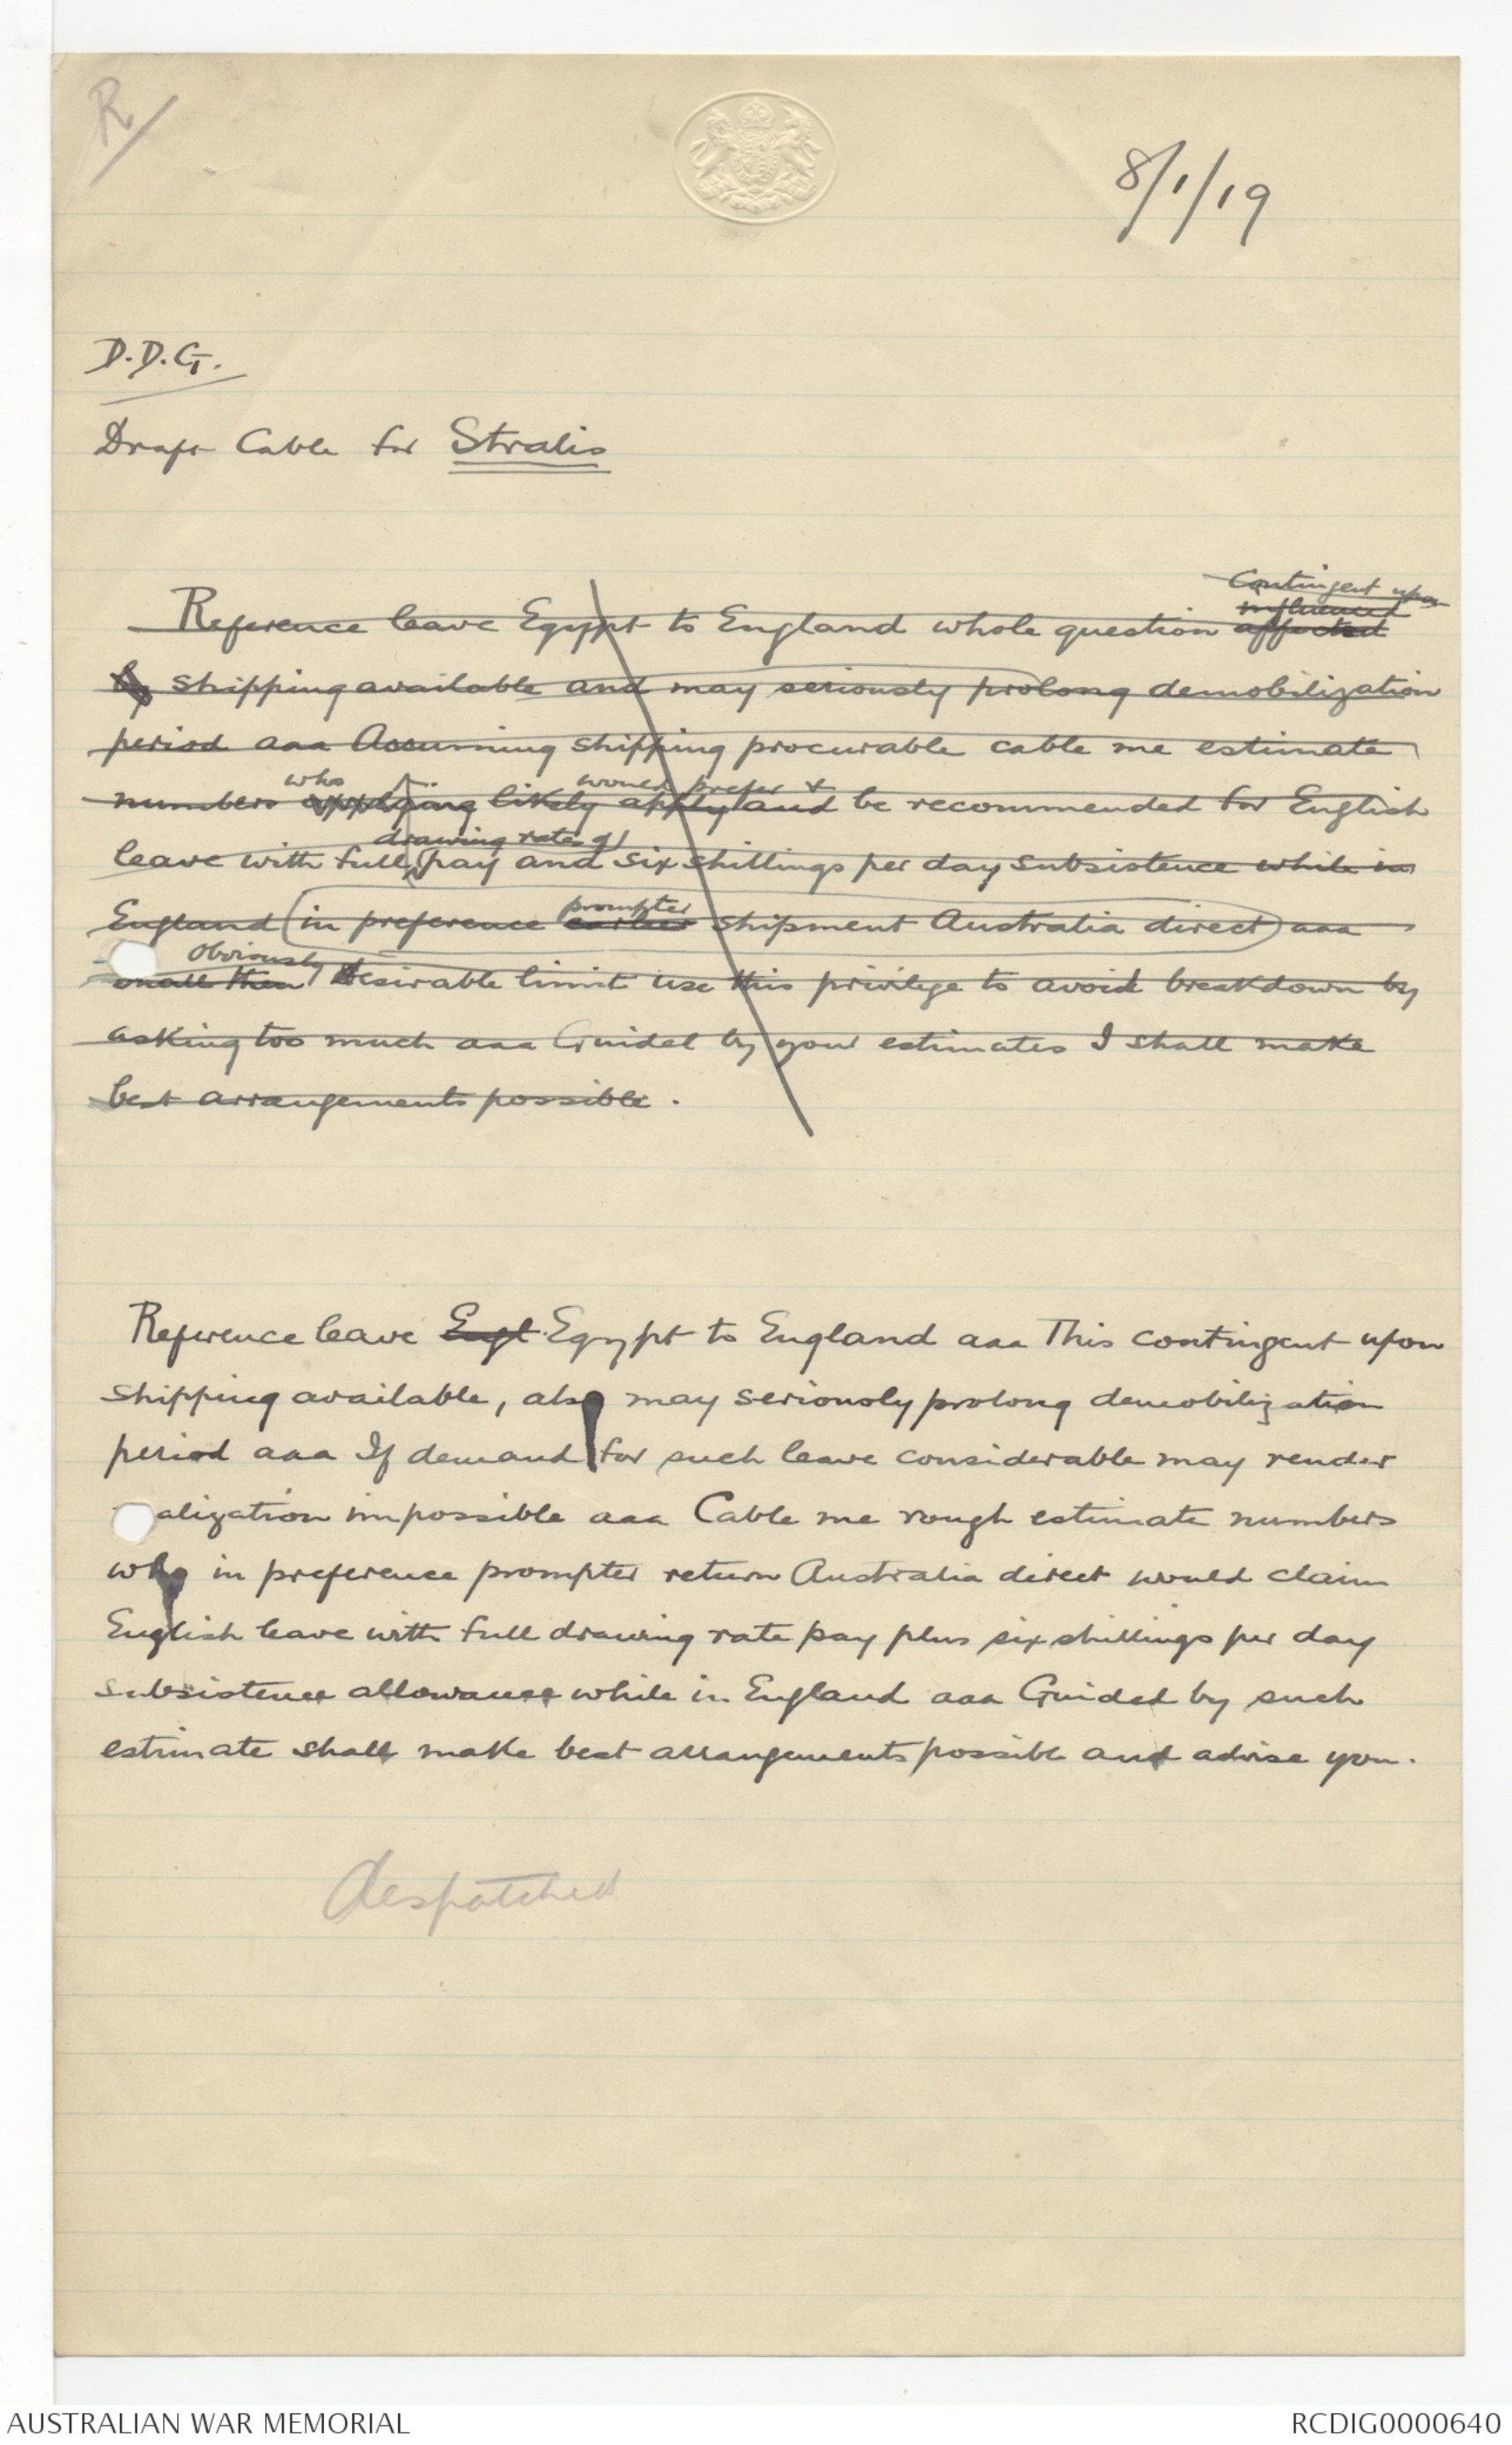 R
8/1/19
D.D.G.
Draft Cable for Stralis
Contingent upon
influenced
Reference leave Egypt to England whole question affected
by shipping available and may seriously prolong demobilization
period aaa Assuming shipping procurable cable me estimate
who would prefer &
numbers applying likely apply and be recommended for English
drawing rate of
leave with full pay and six shillings per day subsistence while in
prompter
England (in preference earlier shipment Australia direct) aaa
Obviously
desirable limit use this privilege to avoid breakdown by
asking too much aaa Guided by your estimates I shall make
best arrangements possible.
Reference leave Engl Egypt to England aaa This contingent upon
shipping available, also may seriously prolong demobilization
period aaa If demand for such leave considerable may render
alization impossible aaa Cable me rough estimate numbers
who in preference prompter return Australia direct would claim
English leave with full drawing rate pay plus six shillings per day
subsistence allowance while in England aaa Guided by such
estimate shall make best arrangements possible and advise you.
despatched
AUSTRALIAN WAR MEMORIAL RCDIG0000640